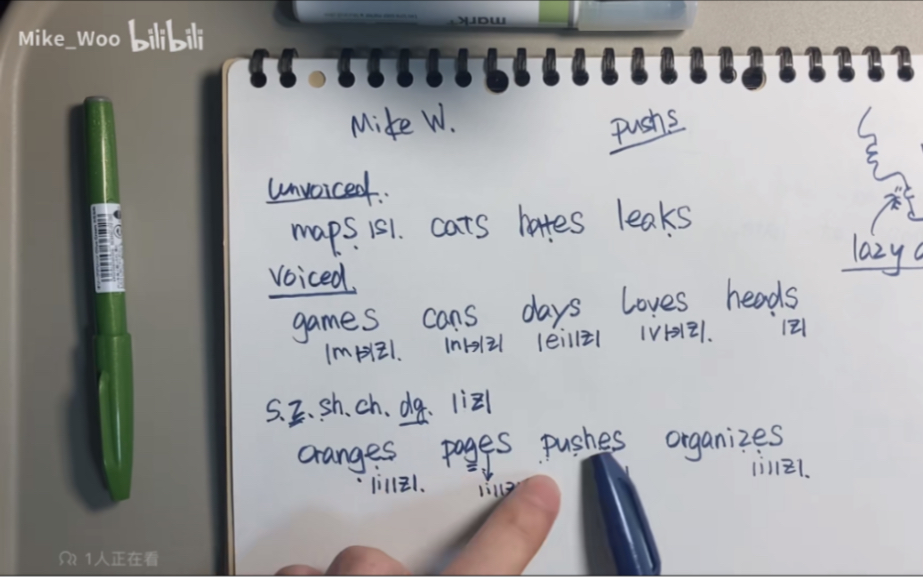 mark
Mike_Woo bilibili
Mike W. pushs
unvoiced.
maps |s|. cats hates leaks
voiced
lazy
games cans days loves heads
|m→|z|. |n→|z| |ei||z| |v→|z|. |z|
s.z.sh.ch.dg. |iz|
oranges pages pushes organizes
|i||z|. |i||z| |i||z|.
1人正在看